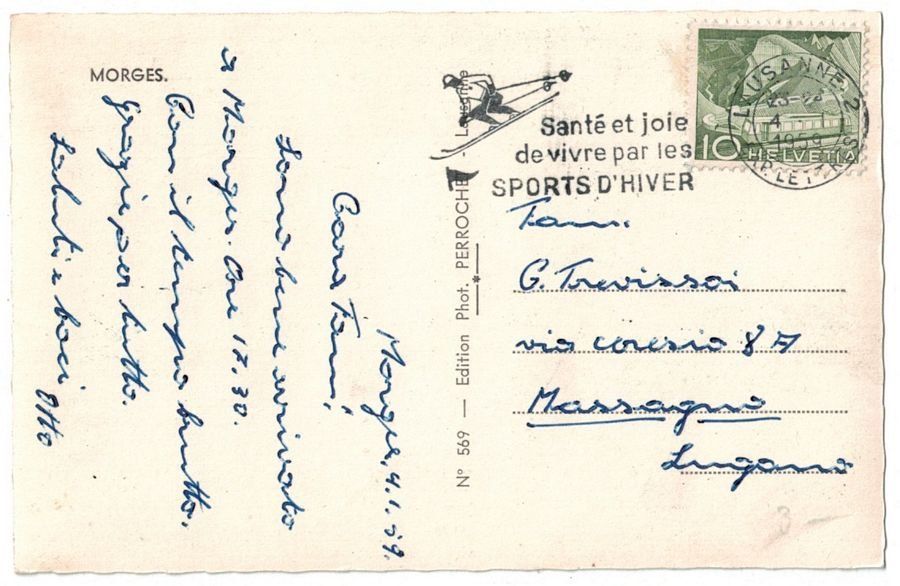 MORGES.
Morges, 4.1.59.
Cara Fam,
Sono bene arrivato
a Morges. Ore 17.30.
Con il tempo brutto.
Grazie per tutto.
Saluti e baci Otto
N° 569 — Edition Phot. PERROCHET - Lausanne
*
Santé et joie
de vivre par les
SPORTS D'HIVER
LAUSANNE 2
4
1959
EXP. LETTRES
10 HELVETIA
Fam.
G. Trevissoi
via ceresio 87
Massagno
Lugano
3 -